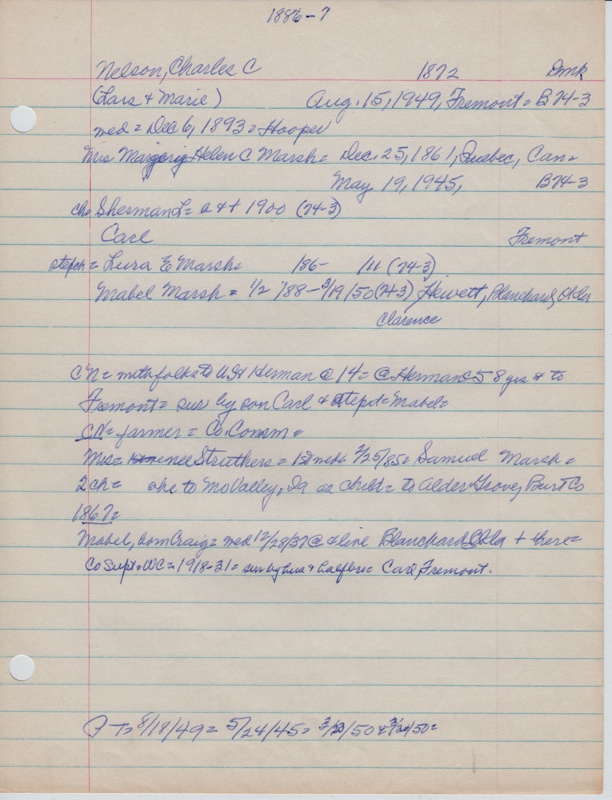 1886-7
Nelson, Charles C 1872 Dmk
(Lars + Marie) Aug. 15, 1949, Fremont = B74-3
med = Dec 6, 1893 = Hooper
Mrs Margorig Helen C Marsh = Dec. 25, 1861, Quebec, Can =
May 19, 1945, B74-3
ch = Sherman L = a + t 1900 (74-3)
Carl Fremont
stepch = Lura E Marsh = 186- (74-3)
Mabel Marsh = 1/2 /88 - 3/19/50 (74-3) Hewett, Blanchard, Okla
Clarence
CN = with folks to US + Herman @ 14 = @ Herman 58 yrs + to
Fremont = sur by son Carl + stepd = Mabel =
CN = farmer = Co Comm =
Mrs = nee Struthers = 1st med = 2/25/85 = Samuel Marsh =
2 ch = she to Mo Valley, Ia as child = to Alder Grove, Burt Co
1867 =
Mabel, born Craig = med 12/28/37 @ + live Blanchard Okla + there =
Co Supt = WC = 1918-31 = sur by hus + half bro = Carl, Fremont.
T = 8/18/49 = 5/24/45 = 3/20/50 + 3/20/50 =